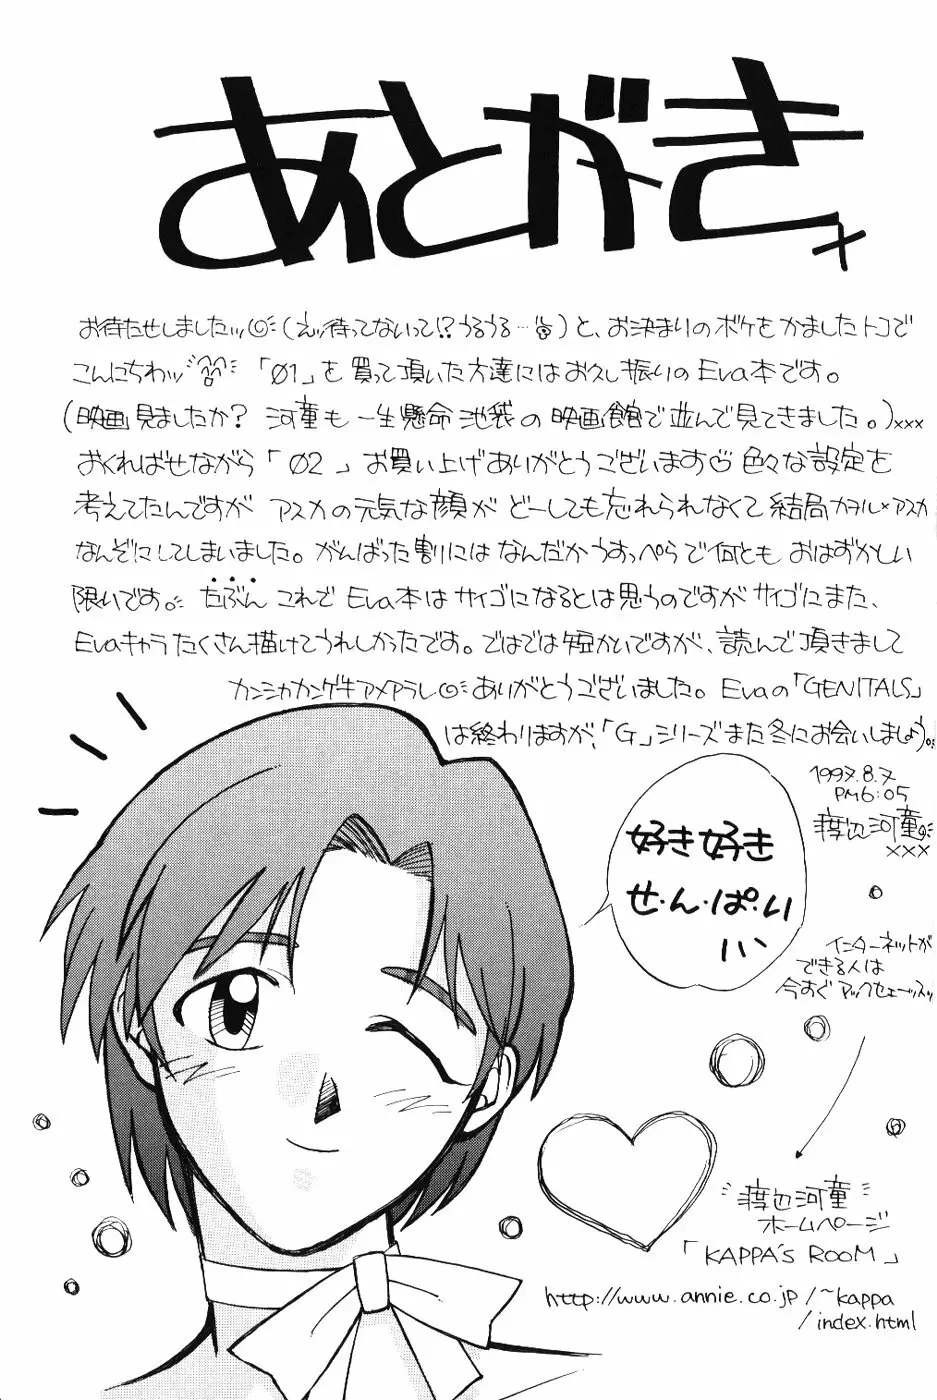 あとがき
お待たせしましたッ(えッ待ってないって!?うるうる…)と、お決まりのボケをかましたトコで
こんにちわッ 「01」を買って頂いた方達にはお久し振りのEva本です。
(映画見ましたか? 河童も一生懸命池袋の映画館で並んで見てきました。)xxx
おくればせながら「02」お買い上げありがとうございます 色々な設定を
考えてたんですが アスカの元気な顔が どーしても忘れられなくて結局カヲル×アスカ
なんぞにしてしまいました。がんばった割にはなんだかうすっぺらで何とも おはずかしい
限りです。たぶん これで Eva本はサイゴになるとは思うのですがサイゴにまた、
Evaキャラたくさん描けてうれしかったです。ではでは短かいですが、読んで頂きまして
カンシャカンゲキアメアラレ ありがとうございました。Evaの「GENITALS」
は終わりますが、「G」シリーズまた冬にお会いしましょう。
1997.8.7
PM6:05
河童
xxx
好き好き
せ・ん・ぱ・い
インターネットが
できる人は
今すぐ アックセェーッスッ
河童
ホームページ
「KAPPA'S ROOM」
http://www.annie.co.jp/~kappa
/index.html